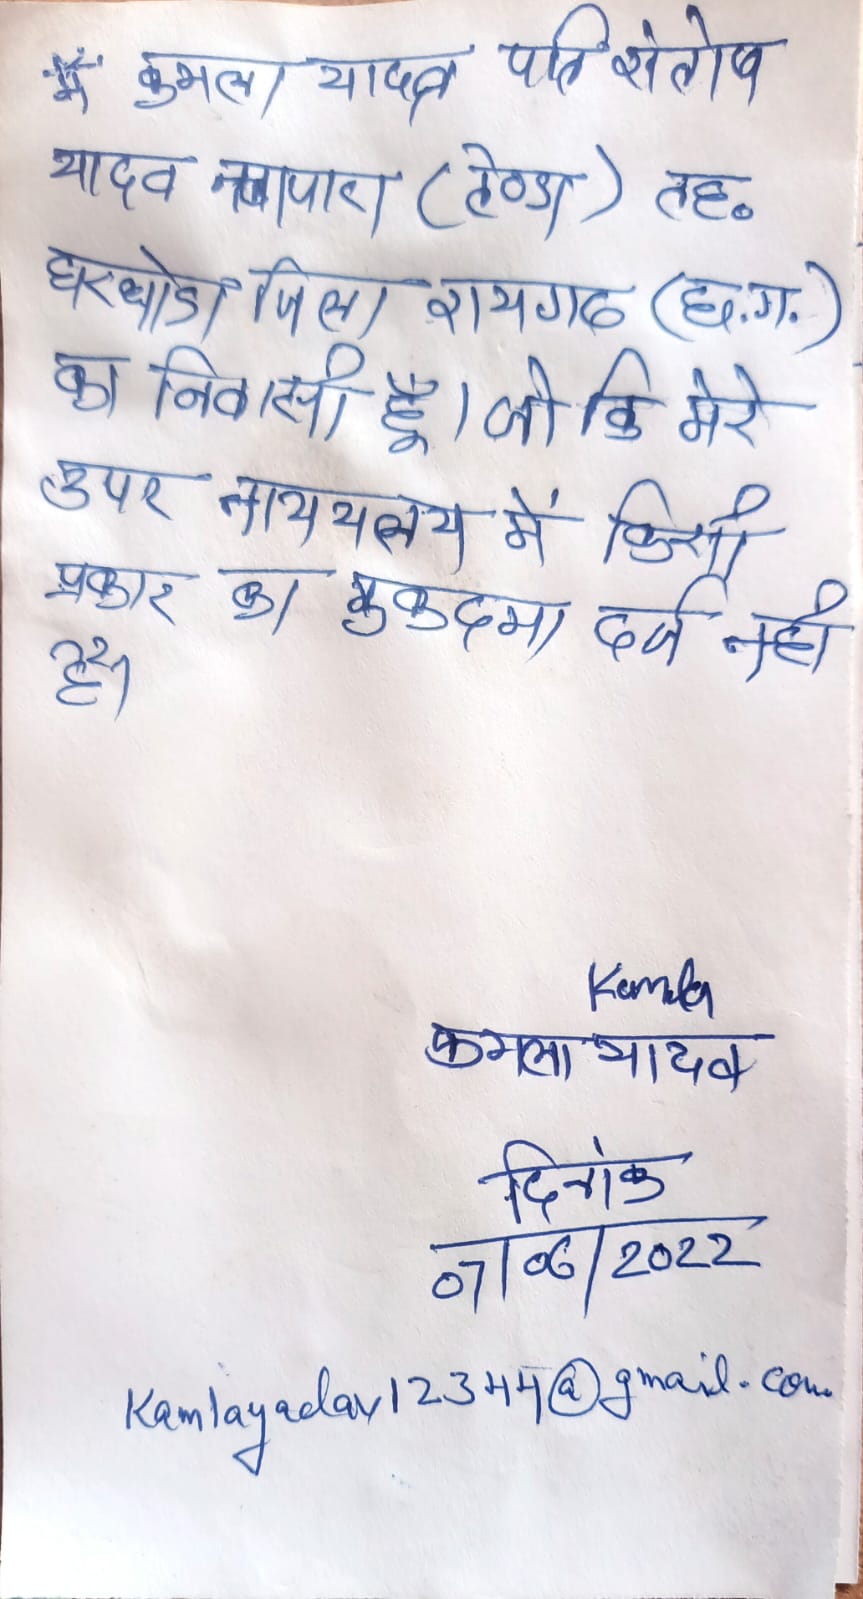 मैं कुमला यादव पति संतोष
यादव नवापारा (तेण्डा) तह.
घरघोडा जिला रायगढ (छ.ग.)
का निवासी हूँ। जो कि मेरे
उपर नाययलय में किसी
प्रकार का मुकदमा दर्ज नही
है।
Kamla
कमला यादव
दिनांक
07/06/2022
Kamlayadav12344@gmail.com